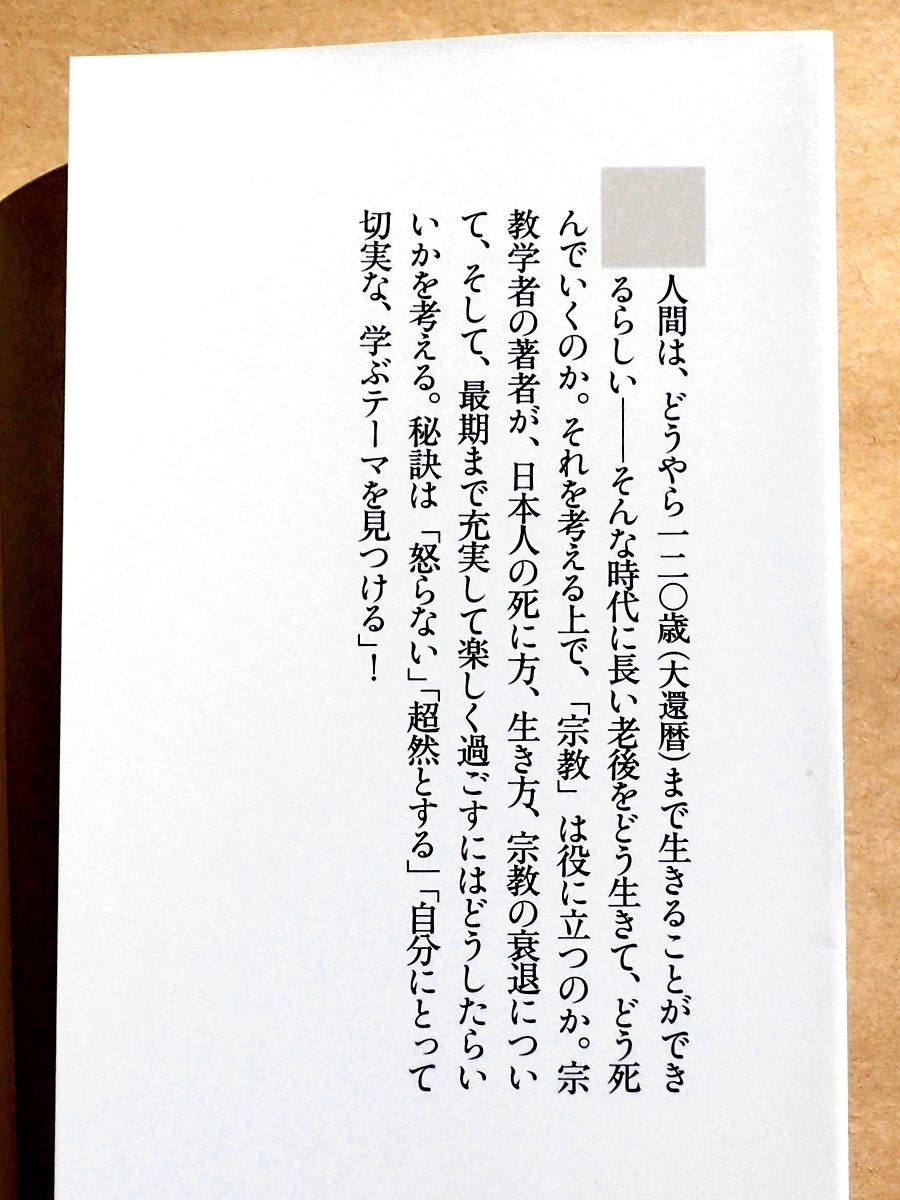 人間は、どうやら一二〇歳(大還暦)まで生きることができ
るらしい――そんな時代に長い老後をどう生きて、どう死
んでいくのか。それを考える上で、「宗教」は役に立つのか。宗
教学者の著者が、日本人の死に方、生き方、宗教の衰退につい
て、そして、最期まで充実して楽しく過ごすにはどうしたらい
いかを考える。秘訣は「怒らない」「超然とする」「自分にとって
切実な、学ぶテーマを見つける」!